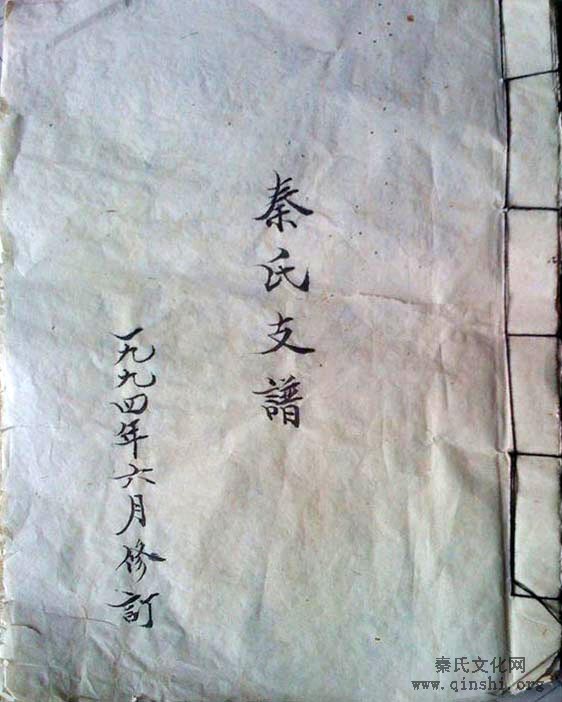 秦氏支譜
一九九四年六月修訂
秦氏文化网
www.qinshi.org